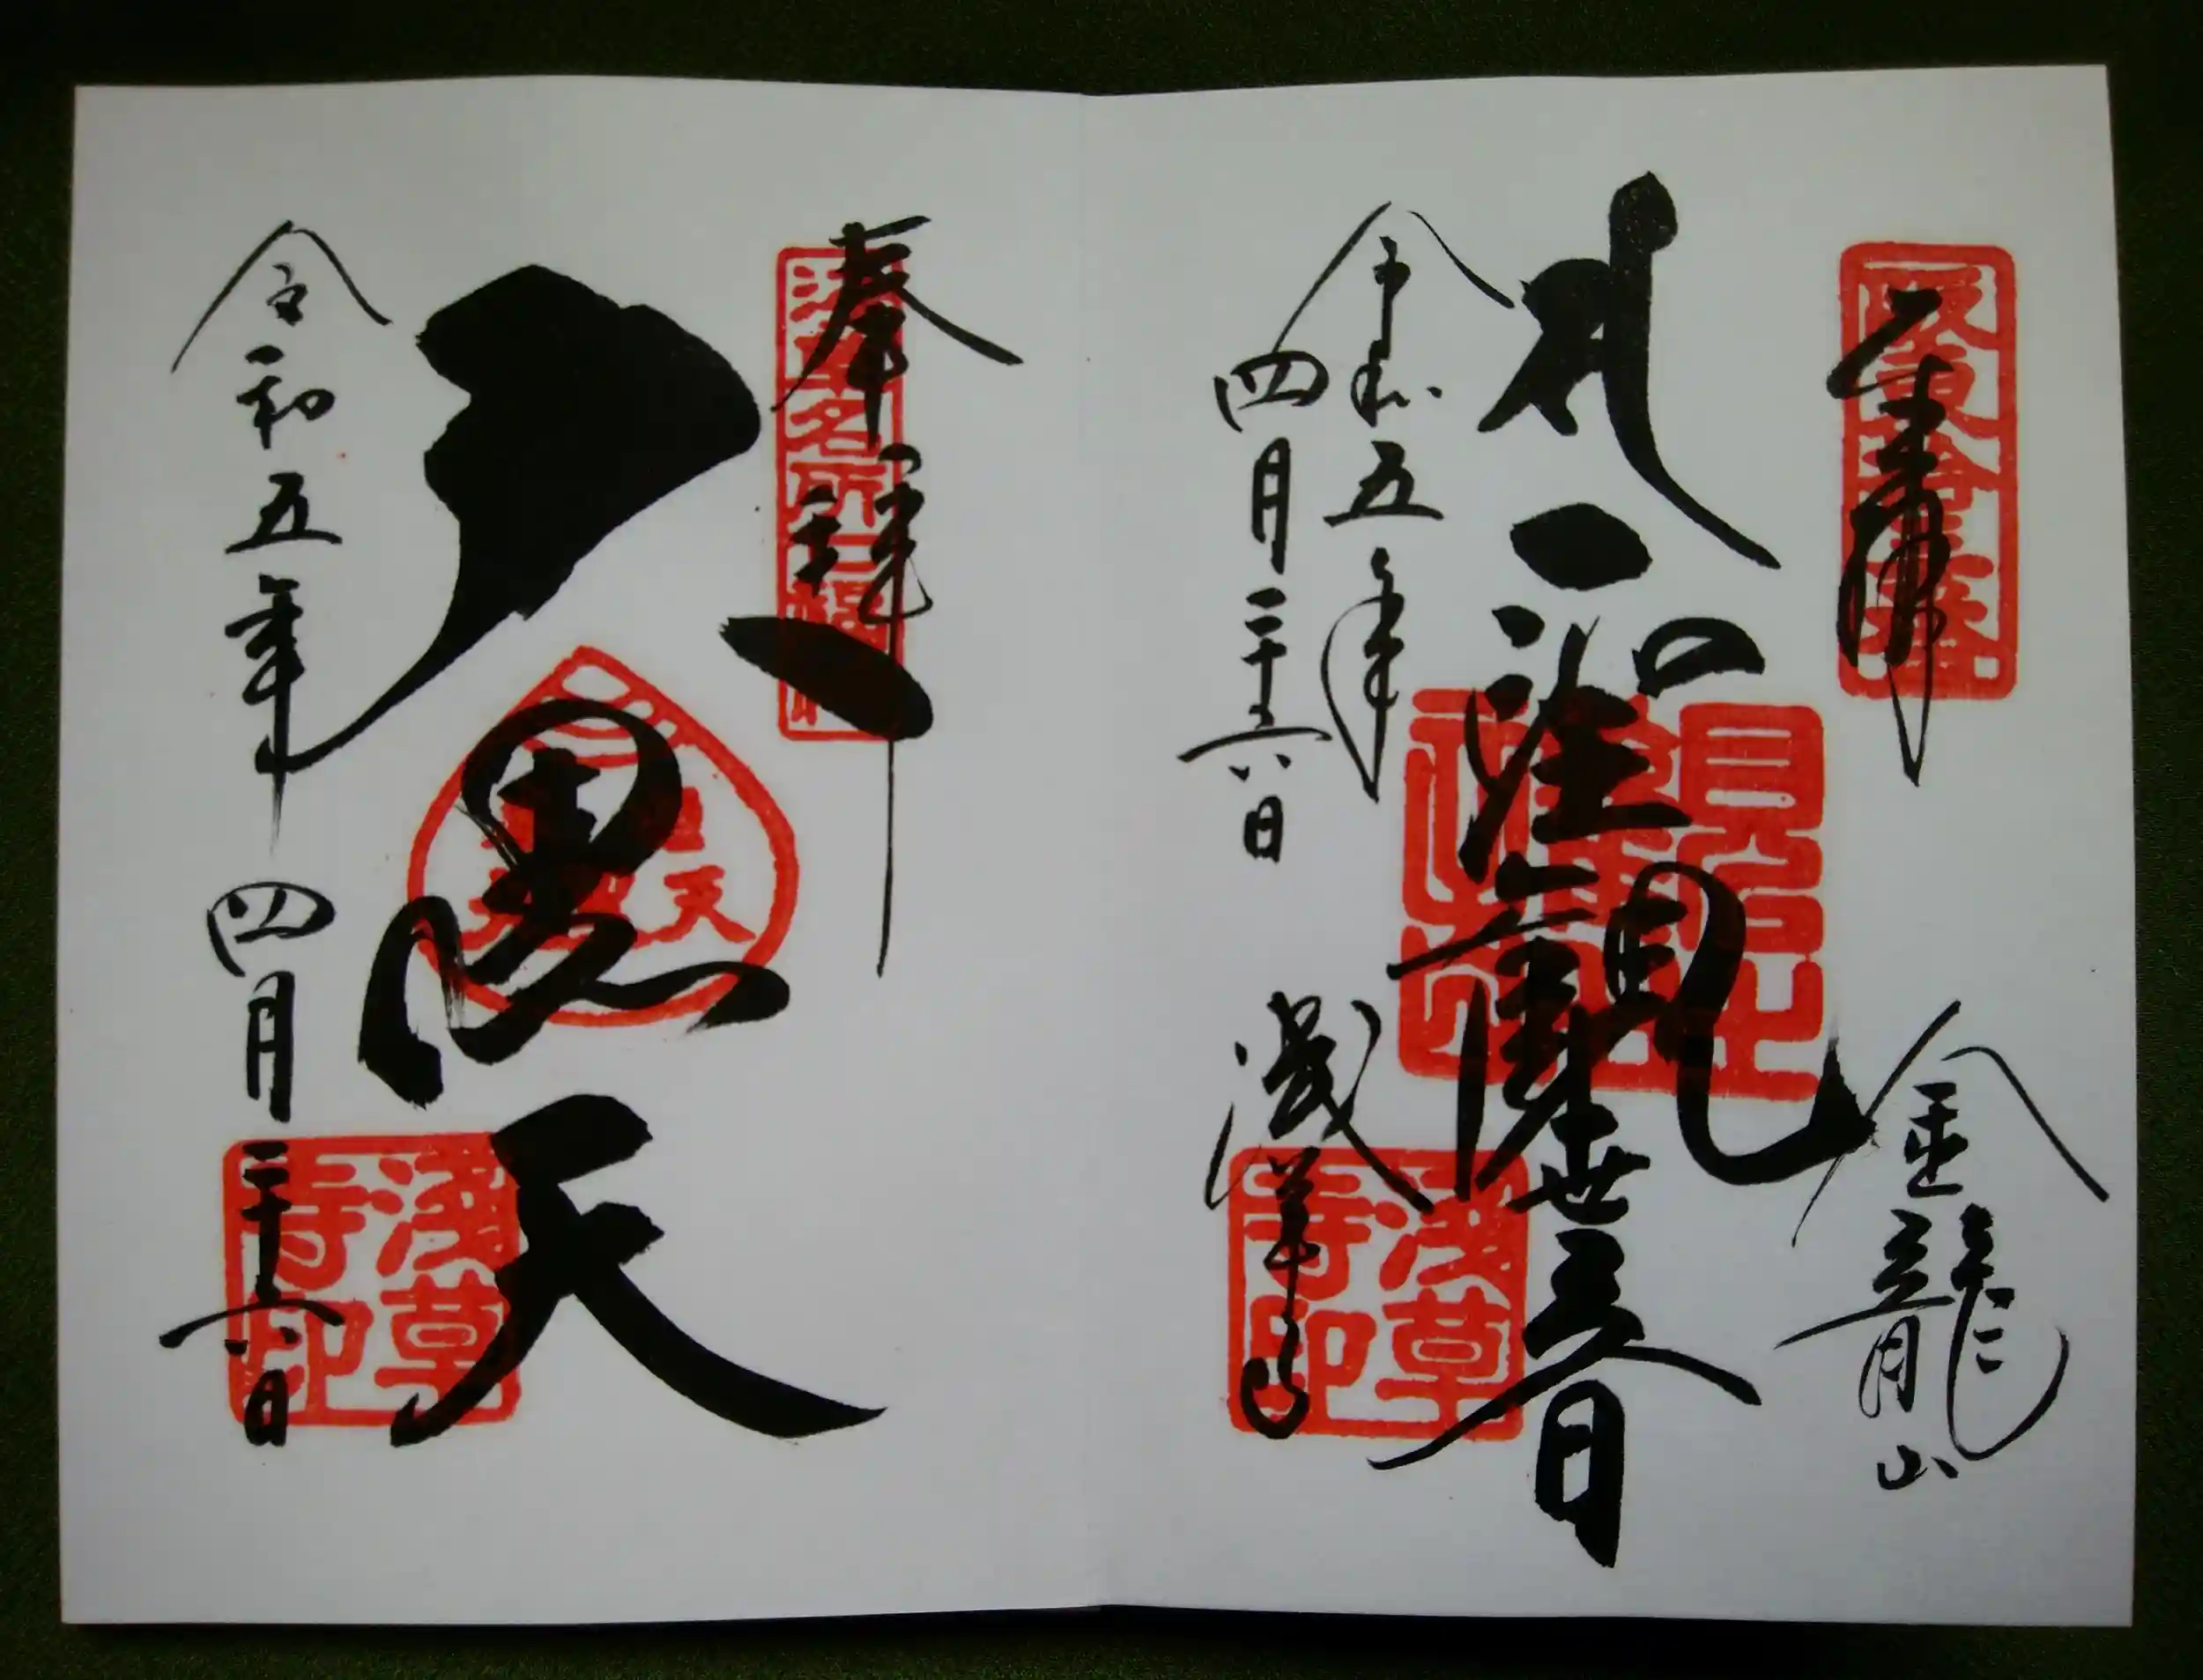 奉拝
坂東拾三番
金龍山
聖観世音
令和五年
四月二十六日
浅草寺
浅草寺印
奉拝
浅草名所七福神
大黒天
令和五年四月二十六日
浅草寺印